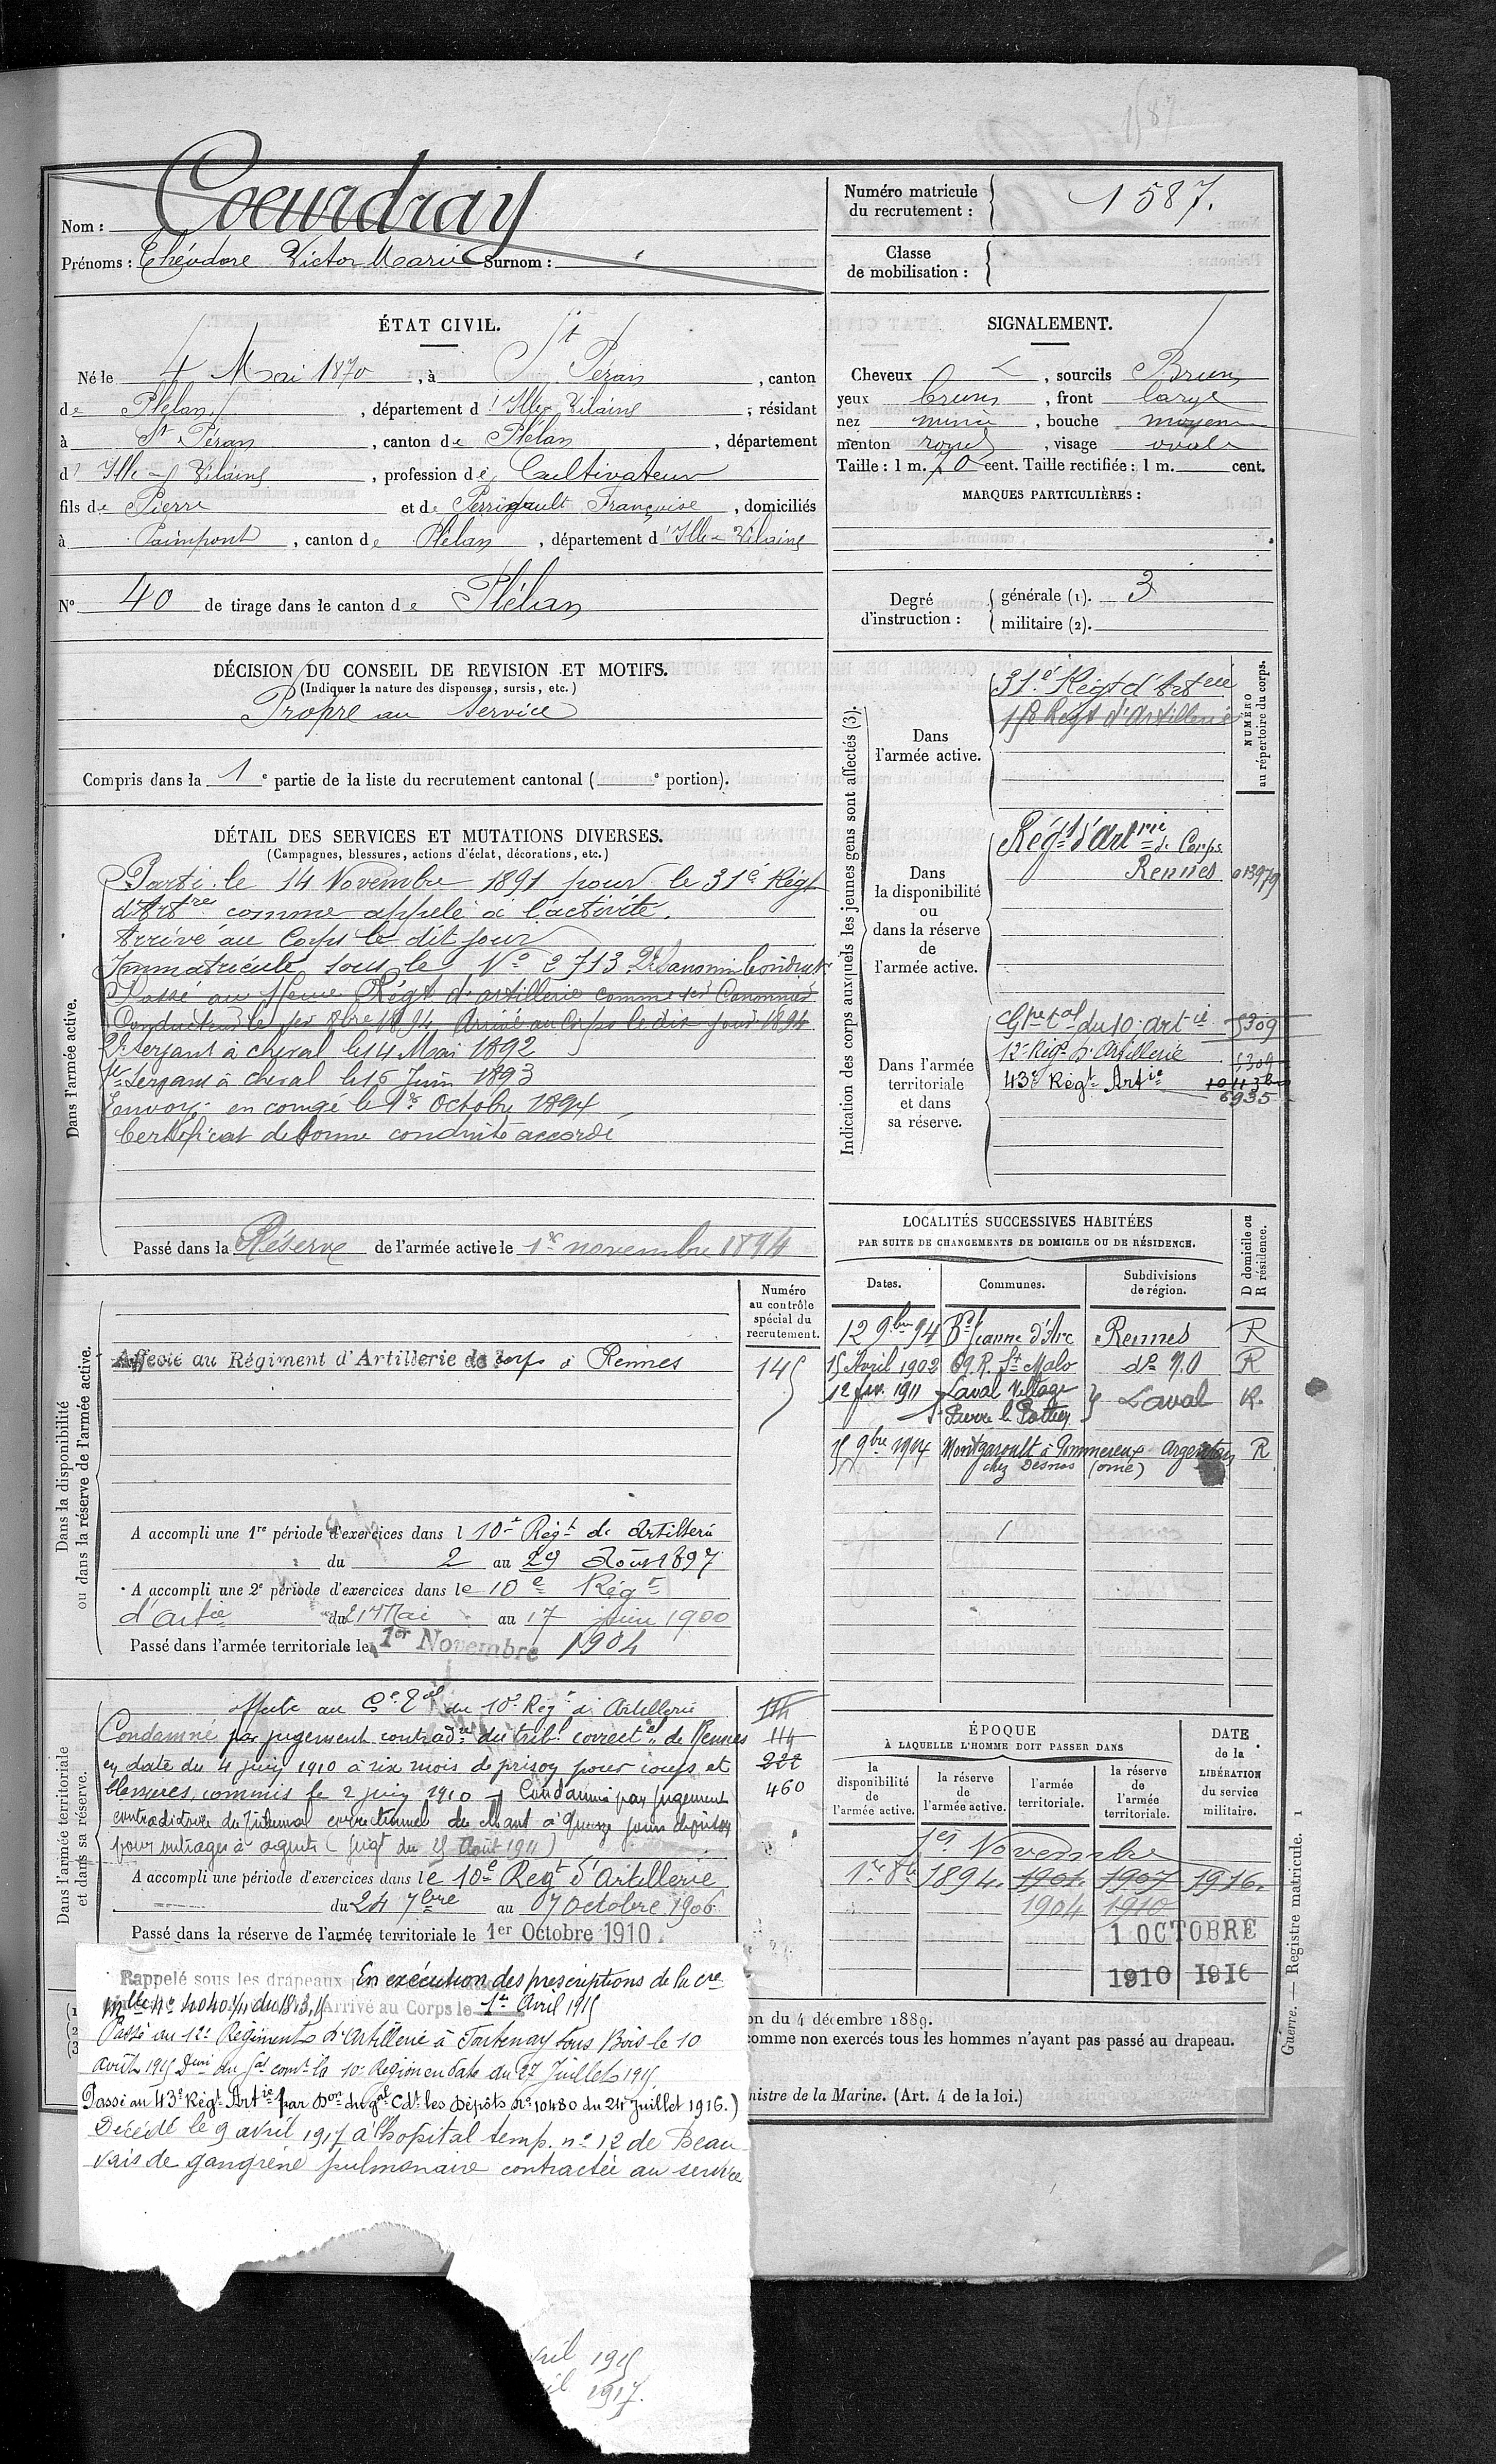 1587
Nom : Coeurdray
Prénoms : Théodore Victor Marie Surnom :
Numéro matricule du recrutement : 1587.
Classe de mobilisation :
ÉTAT CIVIL.
Né le 4 Mai 1870, à St Péran, canton
de Plélan, département d'Ille-Vilaine ; résidant
à St Péran, canton de Plélan, département
d'Ille-&-Vilaine, profession de Cultivateur
fils de Pierre et de Perrigault Françoise, domiciliés
à Paimpont, canton de Plélan, département d'Ille-Vilaine
N° 40 de tirage dans le canton de Plélan
SIGNALEMENT.
Cheveux, sourcils Bruns
yeux bruns, front large
nez mince, bouche moyenne
menton rond, visage ovale
Taille : 1 m. 70 cent. Taille rectifiée : 1 m. cent.
MARQUES PARTICULIÈRES :
Degré d'instruction : générale (1). 3
militaire (2).
DÉCISION DU CONSEIL DE REVISION ET MOTIFS.
(Indiquer la nature des dispenses, sursis, etc.)
Propre au service
Compris dans la 1e partie de la liste du recrutement cantonal ( e portion).
DÉTAIL DES SERVICES ET MUTATIONS DIVERSES.
(Campagnes, blessures, actions d'éclat, décorations, etc.)
Dans l'armée active.
Parti le 14 Novembre 1891 pour le 31é Régt
d'Artre comme appelé à l'activité.
Arrivé au Corps le dit jour
Immatriculé sous le No 2713
Passé au Régt d'artillerie comme 1er Canonnier
Conducteur le 1er 8bre 1894 Arrivé au Corps le dit jour 1894
2e servant à cheval le 14 Mai 1892
1er servant à cheval le 15 Juin 1893
Envoyé en congé le 1er Octobre 1894
Certificat de bonne conduite accordé
Passé dans la Réserve de l'armée active le 1er novembre 1894
Indication des corps auxquels les jeunes gens sont affectés (3).
NUMÉRO au répertoire du corps.
Dans l'armée active.
31é Régt d'Artrie
Régt d'Artillerie
Dans la disponibilité ou dans la réserve de l'armée active.
Régt d'Artrie de Corps
Rennes 013979
Dans l'armée territoriale et dans sa réserve.
Gpe tal du 10e artie 5309
12e Régt d'Artillerie 5309
43e Régt Artie
6935
LOCALITÉS SUCCESSIVES HABITÉES
PAR SUITE DE CHANGEMENTS DE DOMICILE OU DE RÉSIDENCE.
Dates. Communes. Subdivisions de région. D domicile ou R résidence.
12 9bre 94 Bd Jeanne d'Arc Rennes R
15 Avril 1902 69 R. St Malo do R
12 fév. 1911 Laval Village
St Pierre le Potier Laval R.
9bre 1914 Montgaroult à Pommereux Argentan R
chez Desnos (orne)
Dans la disponibilité ou dans la réserve de l'armée active.
Numéro au contrôle spécial du recrutement.
Affecté au Régiment d'Artillerie de corps à Rennes
145
A accompli une 1re période d'exercices dans l 10e Régt de Artillerie
du 2 au 29 Août 1897
A accompli une 2e période d'exercices dans le 10e Régt
d'artie du 21 Mai au 17 juin 1900
Passé dans l'armée territoriale le 1er Novembre 1904
Dans l'armée territoriale et dans sa réserve.
affecté au Ge Tal du 10e Régt d'Artillerie
Condamné par jugement contradre du tribl correctel de Rennes
en date du 4 juin 1910 à six mois de prison pour coups et
blessures, commis le 2 juin 1910 Condamné par jugement
contradictoire du Tribunal correctionnel du à quinze jours de prison
pour outrages à agents (Jugt du Août 1911)
114
114
222
460
A accompli une période d'exercices dans le 10e Regt d'artillerie
du 24 7bre au 7 octobre 1906
Passé dans la réserve de l'armée territoriale le 1er Octobre 1910
ÉPOQUE
À LAQUELLE L'HOMME DOIT PASSER DANS
la disponibilité de l'armée active. la réserve de l'armée active. l'armée territoriale. la réserve de l'armée territoriale.
DATE de la LIBÉRATION du service militaire.
1er Novembre
1894. 1901. 1907 1916.
1904 1910
1 OCTOBRE
1910 1916
Rappelé sous les drapeaux En exécution des prescriptions de la cre
Arrivé au Corps le 1er Avril 1915
Passé au 12e Régiment d'Artillerie à Fontenay sous Bois le 10
août 1915 Don du Gal comt la 10e Région en date du 27 Juillet 1915
Passé au 43e Régt Artie par Don du gal Cdt les Dépôts no 10480 du 24 Juillet 1916.)
Décédé le 9 avril 1917 à l'hopital temp. no 12 de Beau
vais de gangrène pulmonaire contractée au service
vril 1915
il 1917.
on du 4 décembre 1889.
comme non exercés tous les hommes n'ayant pas passé au drapeau.
nistre de la Marine. (Art. 4 de la loi.)
Guerre. — Registre matricule. 1